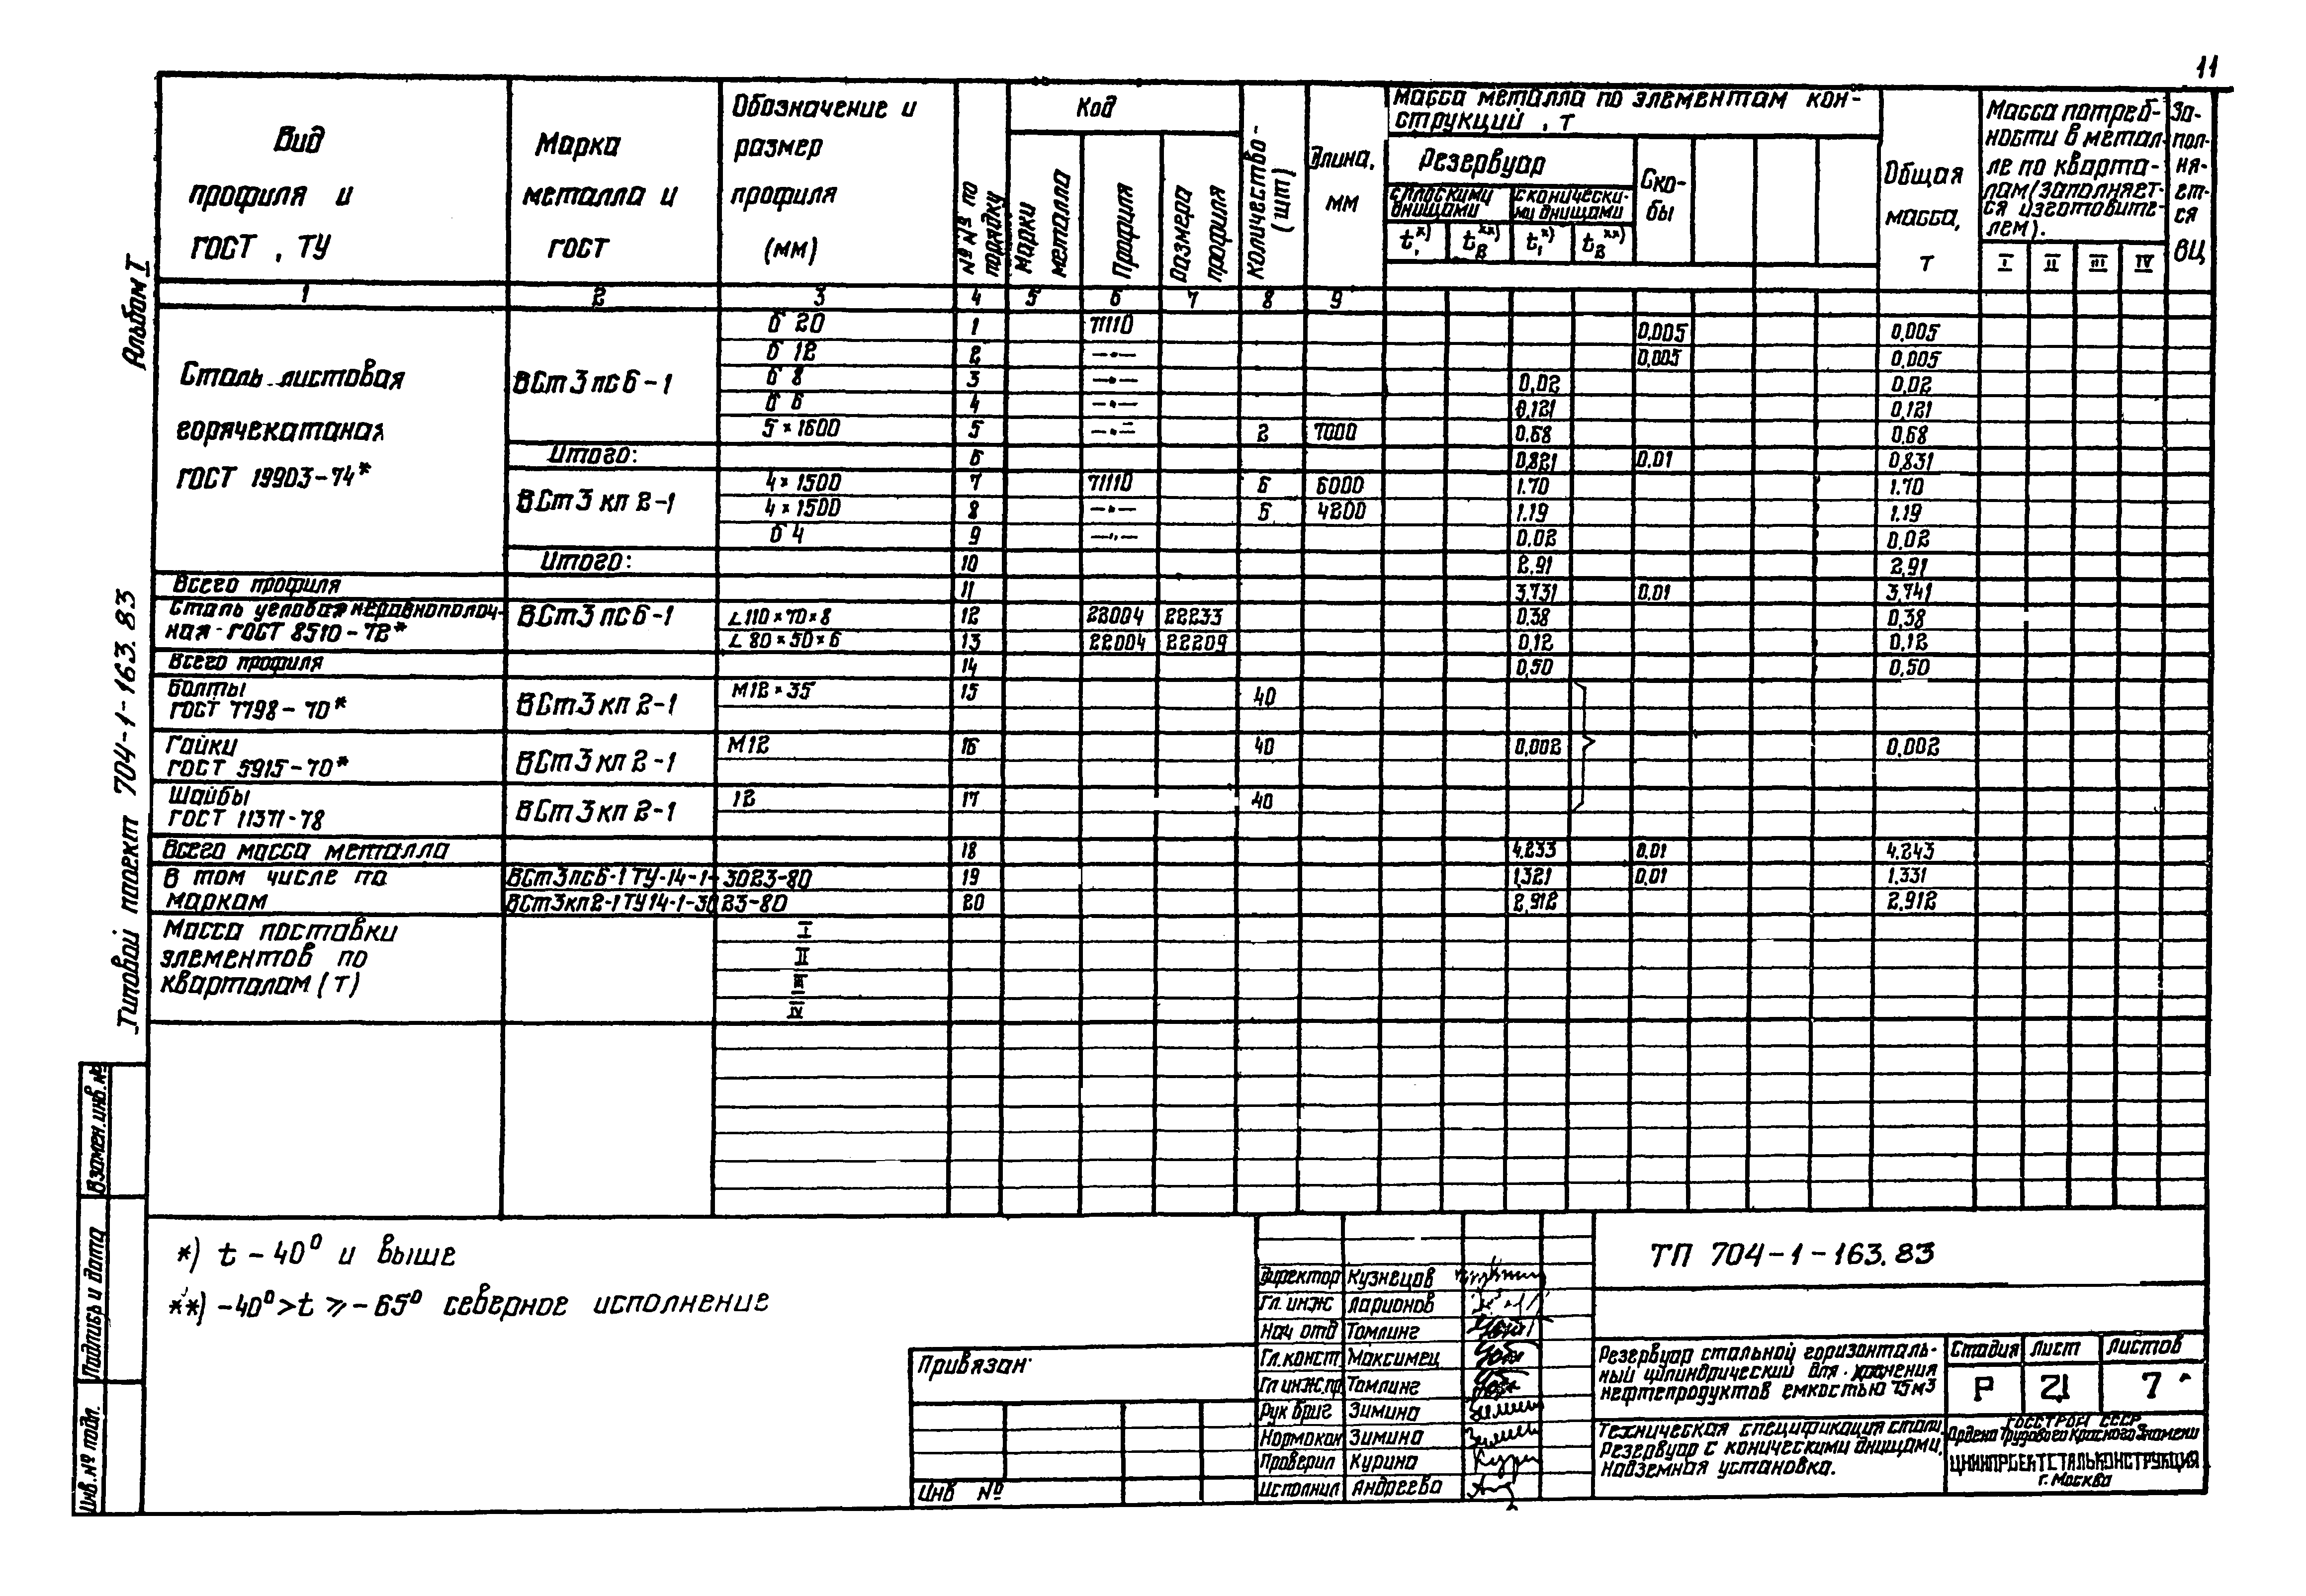 11
Альбом I
Типовой проект 704-1-163.83
Вид профиля и ГОСТ, ТУ
Марка металла и ГОСТ
Обозначение и размер профиля (мм)
№№ по порядку
Код
Марки металла
Профиля
Размера профиля
Количество (шт)
Длина, мм
Масса металла по элементам конструкций, т
Резервуар
с плоскими днищами
с коническими днищами
t₁*) t₈**) t₁*) t₈**)
Скобы
Общая масса, т
Масса потребности в металле по кварталам (заполняется изготовителем).
I II III IV
Заполняется ВЦ
1 2 3 4 5 6 7 8 9
Сталь листовая
горячекатаная
ГОСТ 19903-74*
ВСт3пс6-1
б 20 1 71110 0,005 0,005
б 12 2 —"— 0,005 0,005
б 8 3 —"— 0,02 0,02
б 6 4 —"— 0,121 0,121
5×1600 5 —"— 2 7000 0.68 0.68
Итого: 6 0,821 0.01 0,831
ВСт3кп2-1
4×1500 7 71110 6 6000 1.70 1.70
4×1500 8 —"— 5 4200 1.19 1.19
б 4 9 —"— 0.02 0.02
Итого: 10 2,91 2,91
Всего профиля 11 3,731 0,01 3,741
Сталь угловая неравнополоч-
ная ГОСТ 8510-72*
ВСт3пс6-1
∠110×70×8 12 22004 22233 0.38 0,38
∠80×50×6 13 22004 22209 0,12 0,12
Всего профиля 14 0,50 0,50
Болты
ГОСТ 7798-70*
ВСт3кп2-1 М12×35 15 40
Гайки
ГОСТ 5915-70*
ВСт3кп2-1 М12 16 40 0,002 0,002
Шайбы
ГОСТ 11371-78
ВСт3кп2-1 12 17 40
Всего масса металла 18 4.233 0.01 4.243
В том числе по
маркам
ВСт3пс6-1 ТУ-14-1-3023-80 19 1,321 0,01 1.331
ВСт3кп2-1 ТУ14-1-3023-80 20 2,912 2.912
Масса поставки
элементов по
кварталам (т)
I
II
III
IV
*) t -40° и выше
**) -40°>t⩾-65° северное исполнение
Взамен.инв.№
Подпись и дата
Инв.№ подл.
Привязан:
Инв №
Директор Кузнецов
Гл. инж Ларионов
Нач отд Томлинг
Гл.конст. Максимец
Гл инж.пр Томлинг
Рук бриг Зимина
Нормокон Зимина
Проверил Курина
Исполнил Андреева
ТП 704-1-163.83
Резервуар стальной горизонталь-
ный цилиндрический для хранения
нефтепродуктов емкостью 75 м³
Стадия Лист Листов
Р 2.1 7
Техническая спецификация стали.
Резервуар с коническими днищами,
надземная установка.
ГОССТРОЙ СССР
Ордена Трудового Красного Знамени
ЦНИИПРОЕКТСТАЛЬКОНСТРУКЦИЯ
г. Москва